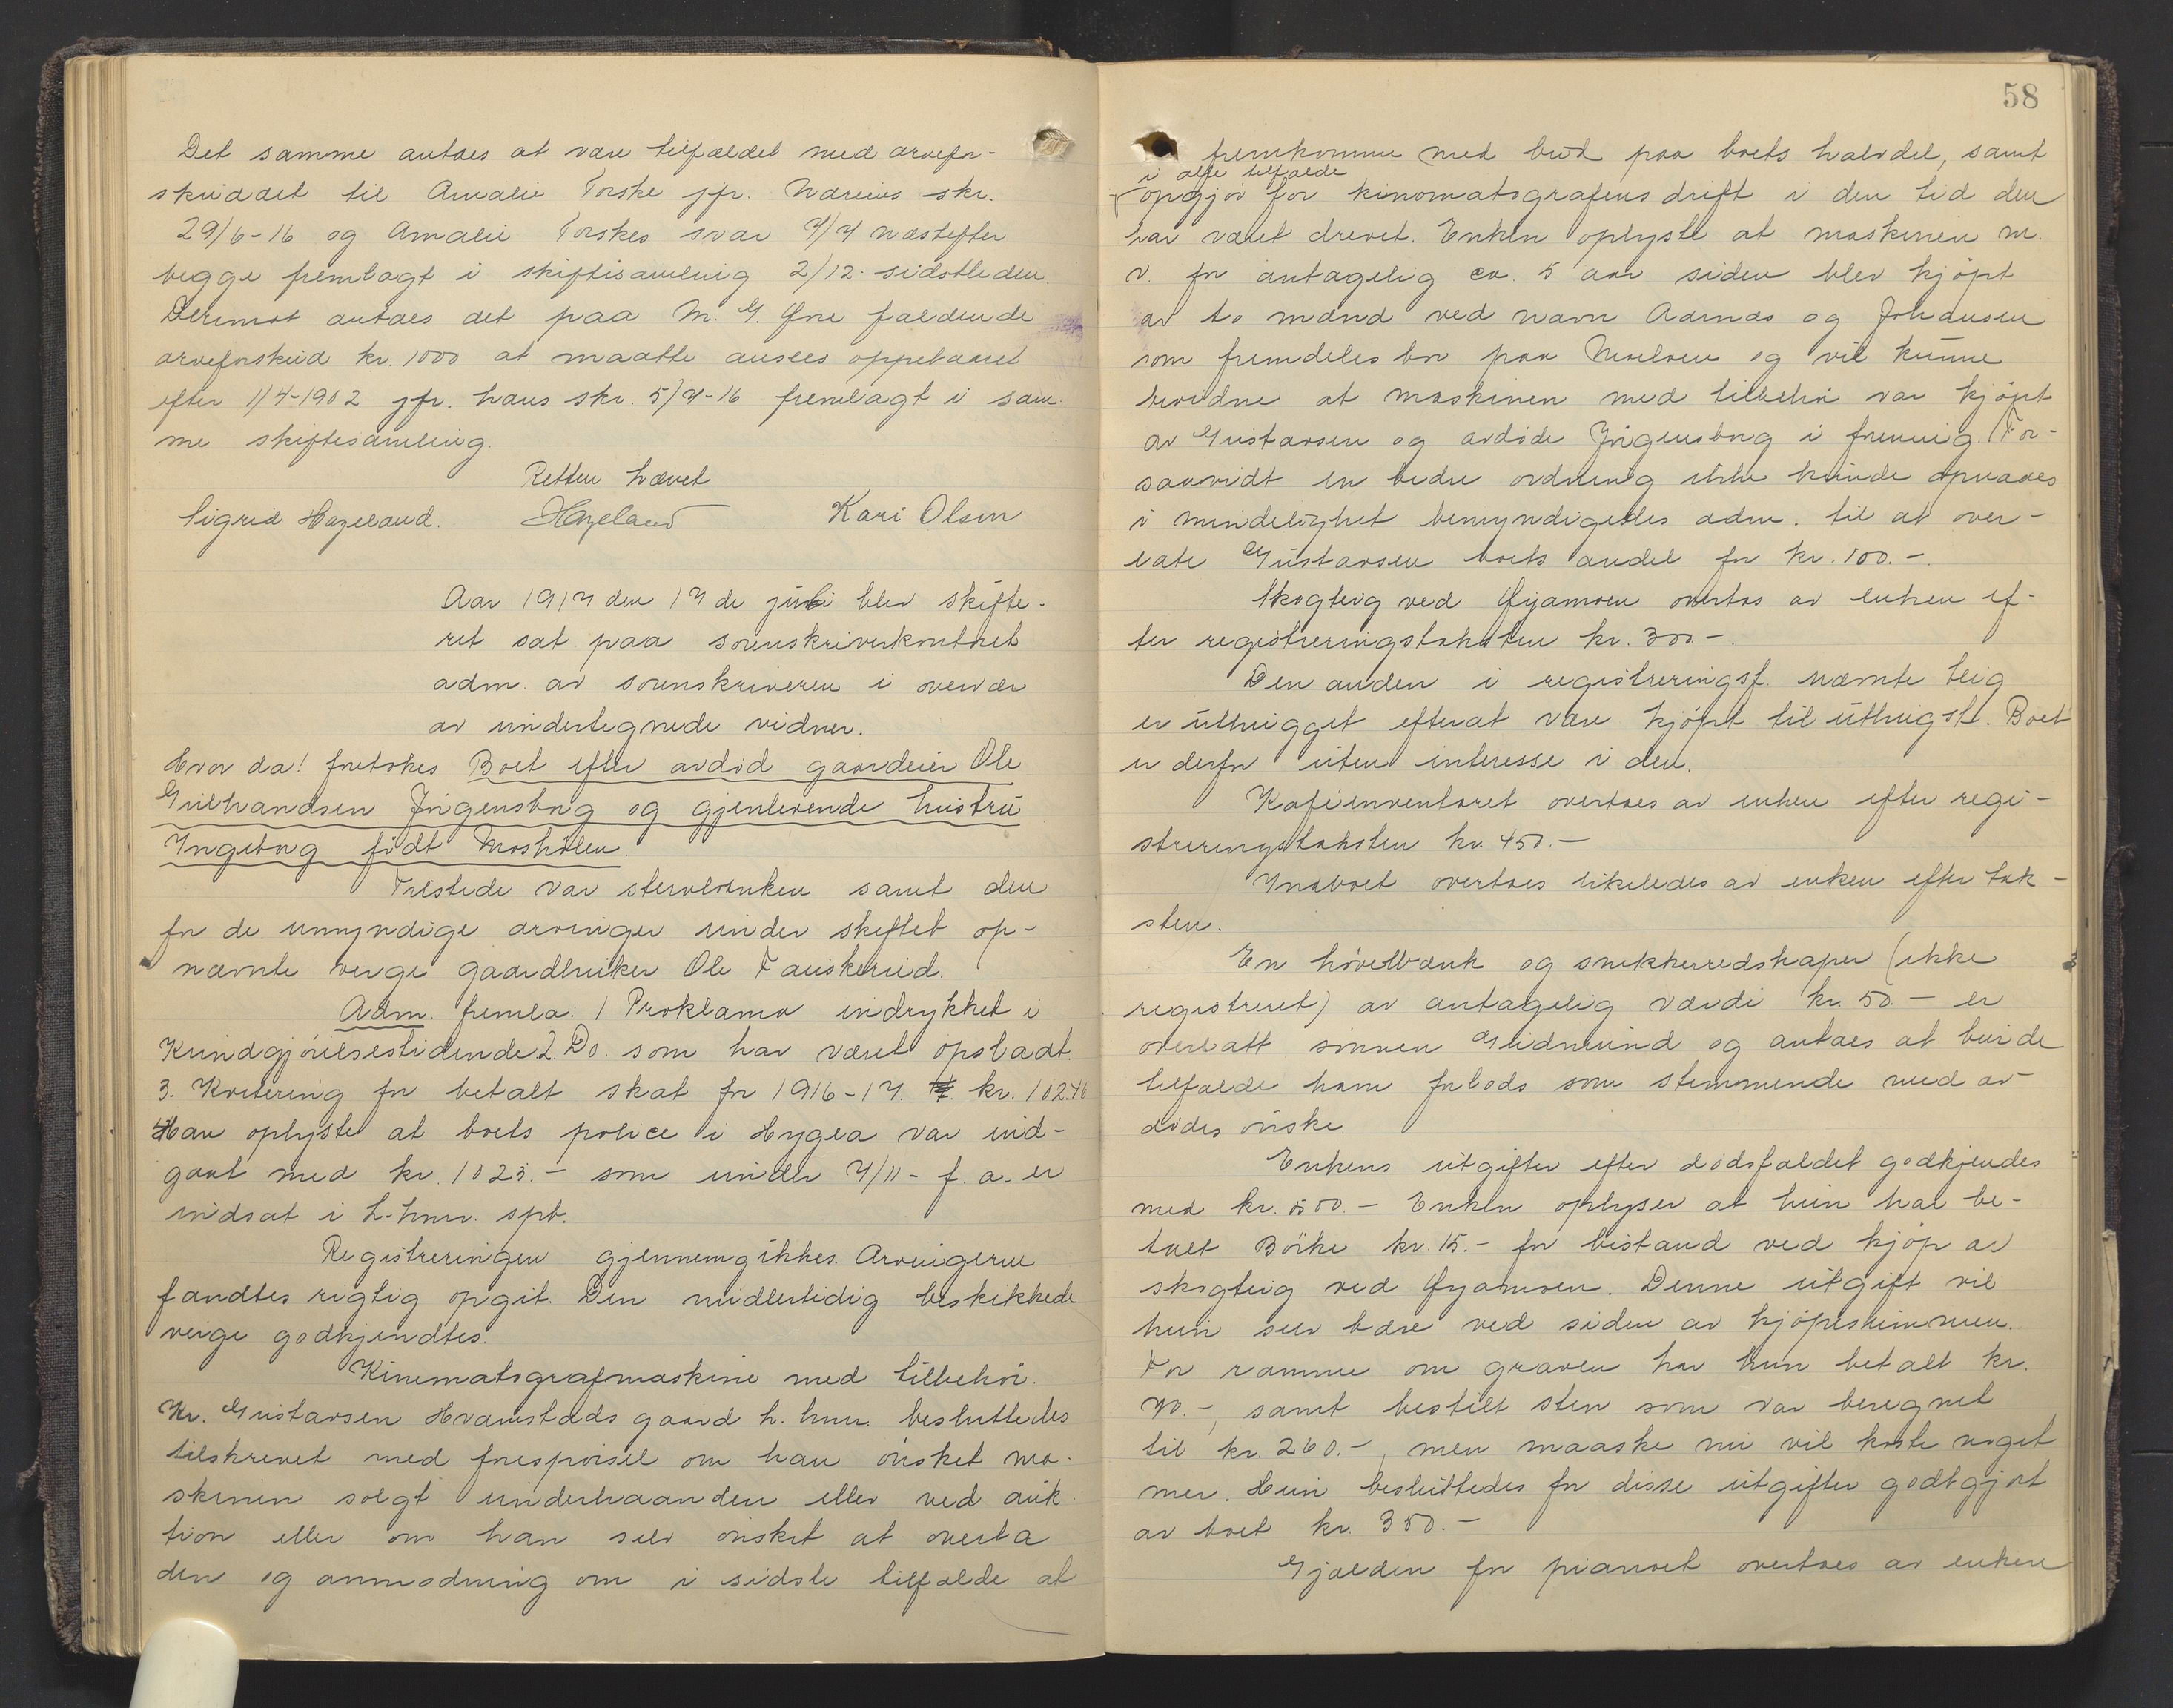 Det samme antaes at være tilfældet med arvefor-
skuddet til Amalie Torske jfr. Nærings skr.
29/6-16 og Amalie Torskes svar 7/7 næstefter
begge fremlagt i skiftesamling 2/12. sidstleden.
Derimot antaes det paa M. G. Gne faldende
arveforskud kr. 1000 at maatte ansees oppebaaret
efter 1/4-1902 jfr. hans skr. 5/7-16 fremlagt i sam-
me skiftesamling.
Retten hævet
Sigrid Hazeland. Hazeland Kari Olsen
Aar 1917 den 17de juli blev skifte-
ret sat paa sorenskriverkontoret
adm. av sorenskriveren i overvær
av undertegnede vidner.
Hvor da! foretokes Boet efter avdød gaardeier Ole
Gulbrandsen Jørgensborg og gjenlevende hustru
Ingeborg født Mosholen.
Tilstede var stervboenken samt den
for de umyndige arvinger under skiftet op-
nævnte verge gaardbruker Ole Fauskerud.
Adm. fremla: 1 Proklama indrykket i
Kundgjørelsestidende 2. Do. som har været opsladt.
3. Kvitering for betalt skat for 1916-17. kr. 102.76
Han oplyste at boets police i Hygea var ind-
gaat med kr. 1023.- som under 7/11- f. a. er
indsat i L-hmr. spb.
Registreringen gjennemgikkes. Arvingerne
fandtes rigtig opgit. Den midlertidig beskikkede
verge godkjendtes.
Kinematografmaskine med tilbehør.
Kr. Gustavsen Hvamstads gaard L. hmr. besluttedes
tilskrevet med forespørsel om han ønsket ma-
skinen solgt underhaanden eller ved auk-
tion eller om han selv ønsket at overta
den og anmodning om i sidste tilfælde at
58
fremkomme med bud paa boets halvdel, samt
i alle tilfælde
opgjør for kinomatografens drift i den tid den
har været drevet. Enken oplyste at maskinen m.
v. for antagelig ca. 5 aar siden blev kjøpt
av to mænd ved navn Aarnæs og Johansen
som fremdeles bor paa Moelven og vil kunne
bevidne at maskinen med tilbehør var kjøpt
av Gustavsen og avdøde Jørgensborg i forening. For-
saavidt en bedre ordning ikke kunde opnaaes
i mindelighet bemyndigedes adm. til at over-
late Gustavsen boets andel for kr. 100.-.
Skogteig ved Gjamoen overtas av enken ef-
ter registreringstaksten kr. 300-.
Den anden i registreringsf. nævnte teig
er uthugget efterat være kjøpt til uthugst. Boet
er derfor uten interesse i den.
Kaféinventaret overtaes av enken efter regi-
streringstaksten kr. 450.-
Indboet overtaes likeledes av enken efter tak-
sten.
En høvelbænk og snekkerredskaper (ikke
registreret) av antagelig værdi kr. 50.- er
overlatt sønnen Gudmund og antaes at burde
tilfalde ham forlods som stemmende med av-
dødes ønske.
Enkens utgifter efter dødsfaldet godkjendes
med kr. 500.- Enken oplyser at hun har be-
talt Börke kr. 15.- for bistand ved kjøp av
skogteig ved Gjamoen. Denne utgift vil
hun selv bære ved siden av kjøpesummen.
For ramme om graven har hun betalt kr.
70.-, samt bestilt sten som var beregnet
til kr. 260.-, men maaske nu vil koste noget
mer. Hun besluttedes for disse utgifter godtgjort
av boet kr. 350.-
Gjælden for pianoet overtaes av enken